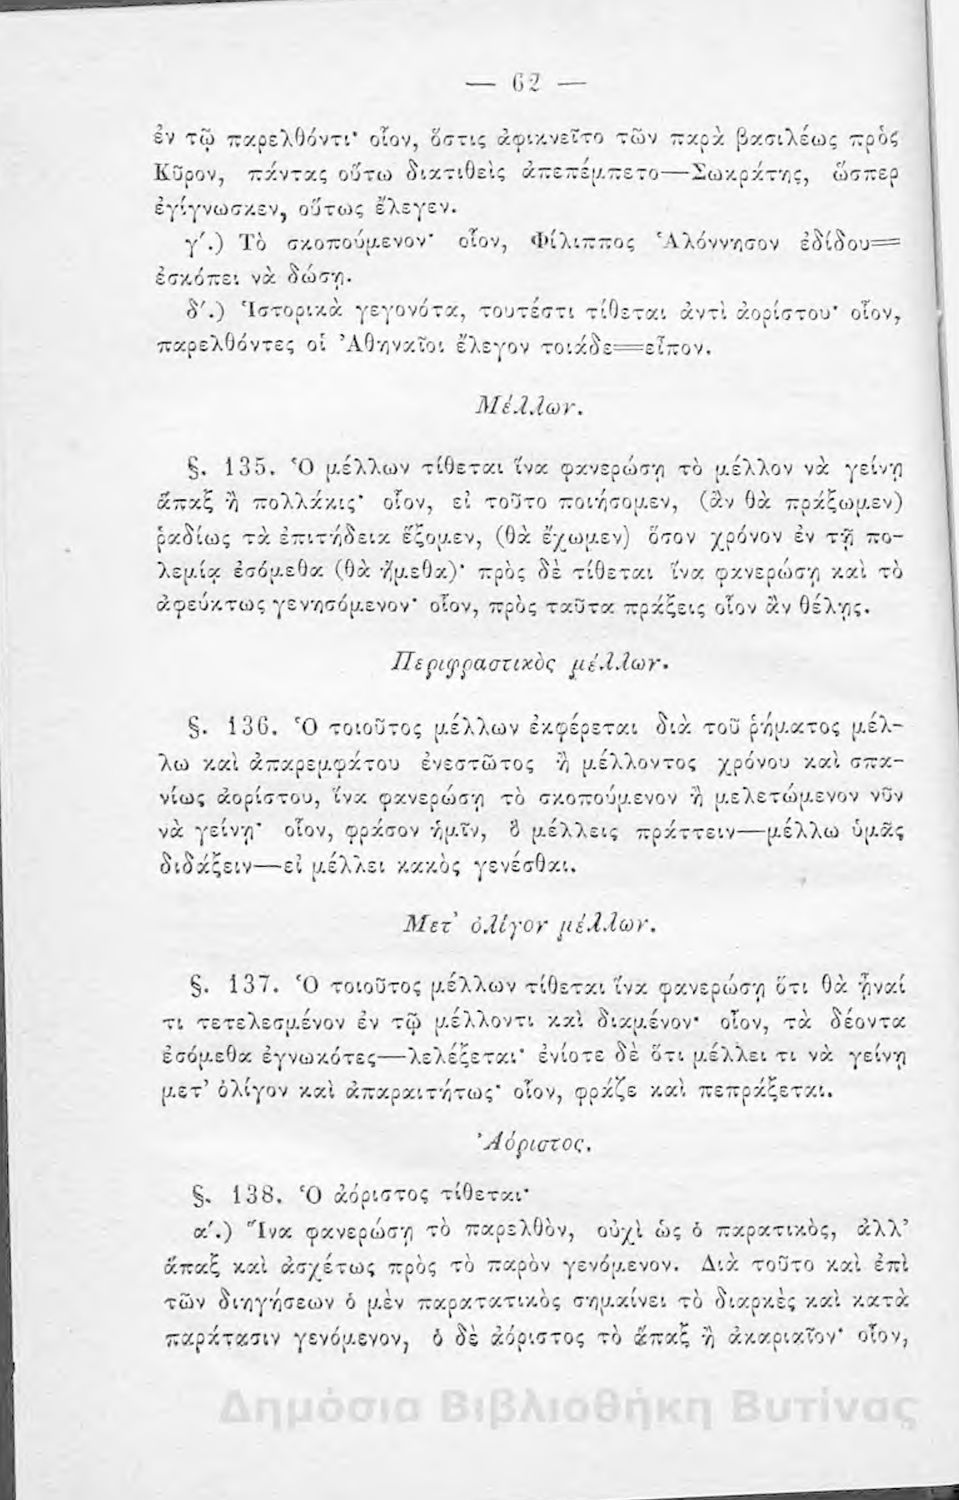 — 62 —
ἐν τῷ παρελθόντι· οἷον, ὅστις ἀφικνεῖτο τῶν παρὰ βασιλέως πρὸς
Κῦρον, πάντας οὕτω διατιθεὶς ἀπεπέμπετο—Σωκράτης, ὥσπερ
ἐγίγνωσκεν, οὕτως ἔλεγεν.
γ΄.) Τὸ σκοπούμενον· οἷον, Φίλιππος Ἁλόννησον ἐδίδου=
ἐσκόπει νὰ δώσῃ.
δ΄.) Ἱστορικὰ γεγονότα, τουτέστι τίθεται ἀντὶ ἀορίστου· οἷον,
παρελθόντες οἱ Ἀθηναῖοι ἔλεγον τοιάδε=εἶπον.
Μέλλων.
§. 135. Ὁ μέλλων τίθεται ἵνα φανερώσῃ τὸ μέλλον νὰ γείνῃ
ἅπαξ ἢ πολλάκις· οἷον, εἰ τοῦτο ποιήσομεν, (ἂν θὰ πράξωμεν)
ῥᾳδίως τὰ ἐπιτήδεια ἕξομεν, (θὰ ἔχωμεν) ὅσον χρόνον ἐν τῇ πο-
λεμίᾳ ἐσόμεθα (θὰ ἤμεθα)· πρὸς δὲ τίθεται ἵνα φανερώσῃ καὶ τὸ
ἀφεύκτως γενησόμενον· οἷον, πρὸς ταῦτα πράξεις οἷον ἂν θέλῃς.
Περιφραστικὸς μέλλων.
§. 136. Ὁ τοιοῦτος μέλλων ἐκφέρεται διὰ τοῦ ῥήματος μέλ-
λω καὶ ἀπαρεμφάτου ἐνεστῶτος ἢ μέλλοντος χρόνου καὶ σπα-
νίως ἀορίστου, ἵνα φανερώσῃ τὸ σκοπούμενον ἢ μελετώμενον νῦν
νὰ γείνῃ· οἷον, φράσον ἡμῖν, ὃ μέλλεις πράττειν—μέλλω ὑμᾶς
διδάξειν—εἰ μέλλει κακὸς γενέσθαι.
Μετ᾽ ὀλίγον μέλλων.
§. 137. Ὁ τοιοῦτος μέλλων τίθεται ἵνα φανερώσῃ ὅτι θὰ ᾖναί
τι τετελεσμένον ἐν τῷ μέλλοντι καὶ διαμένον· οἷον, τὰ δέοντα
ἐσόμεθα ἐγνωκότες—λελέξεται· ἐνίοτε δὲ ὅτι μέλλει τι νὰ γείνῃ
μετ᾽ ὀλίγον καὶ ἀπαραιτήτως· οἷον, φράζε καὶ πεπράξεται.
Ἀόριστος.
§. 138. Ὁ ἀόριστος τίθεται·
α΄.) Ἵνα φανερώσῃ τὸ παρελθὸν, οὐχὶ ὡς ὁ παρατικὸς, ἀλλ᾽
ἅπαξ καὶ ἀσχέτως πρὸς τὸ παρὸν γενόμενον. Διὰ τοῦτο καὶ ἐπὶ
τῶν διηγήσεων ὁ μὲν παρατατικὸς σημαίνει τὸ διαρκὲς καὶ κατὰ
παράτασιν γενόμενον, ὁ δὲ ἀόριστος τὸ ἅπαξ ἢ ἀκαριαῖον· οἷον,
Δημόσια Βιβλιοθήκη Βυτίνας